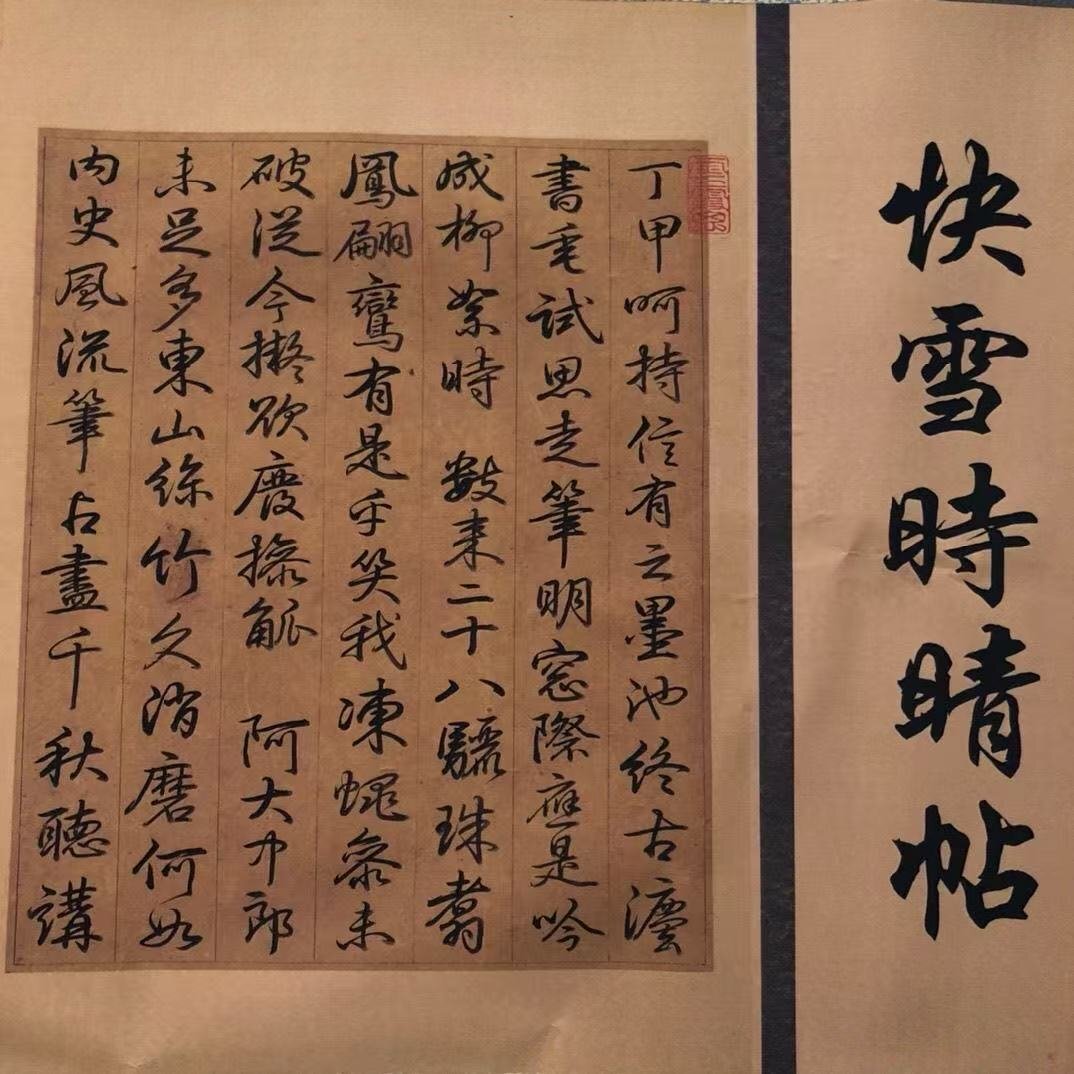 快雪時晴帖
丁甲呵持信有之墨池終古灋
書垂試思走筆明窓際應是吟
成柳絮時 數来二十八驪珠翥
鳳翩鸞有是乎笑我凍蠅参未
破從今擬欲廢操觚 阿大中郎
未足多東山絲竹久消磨何如
内史風流筆占盡千秋聽講